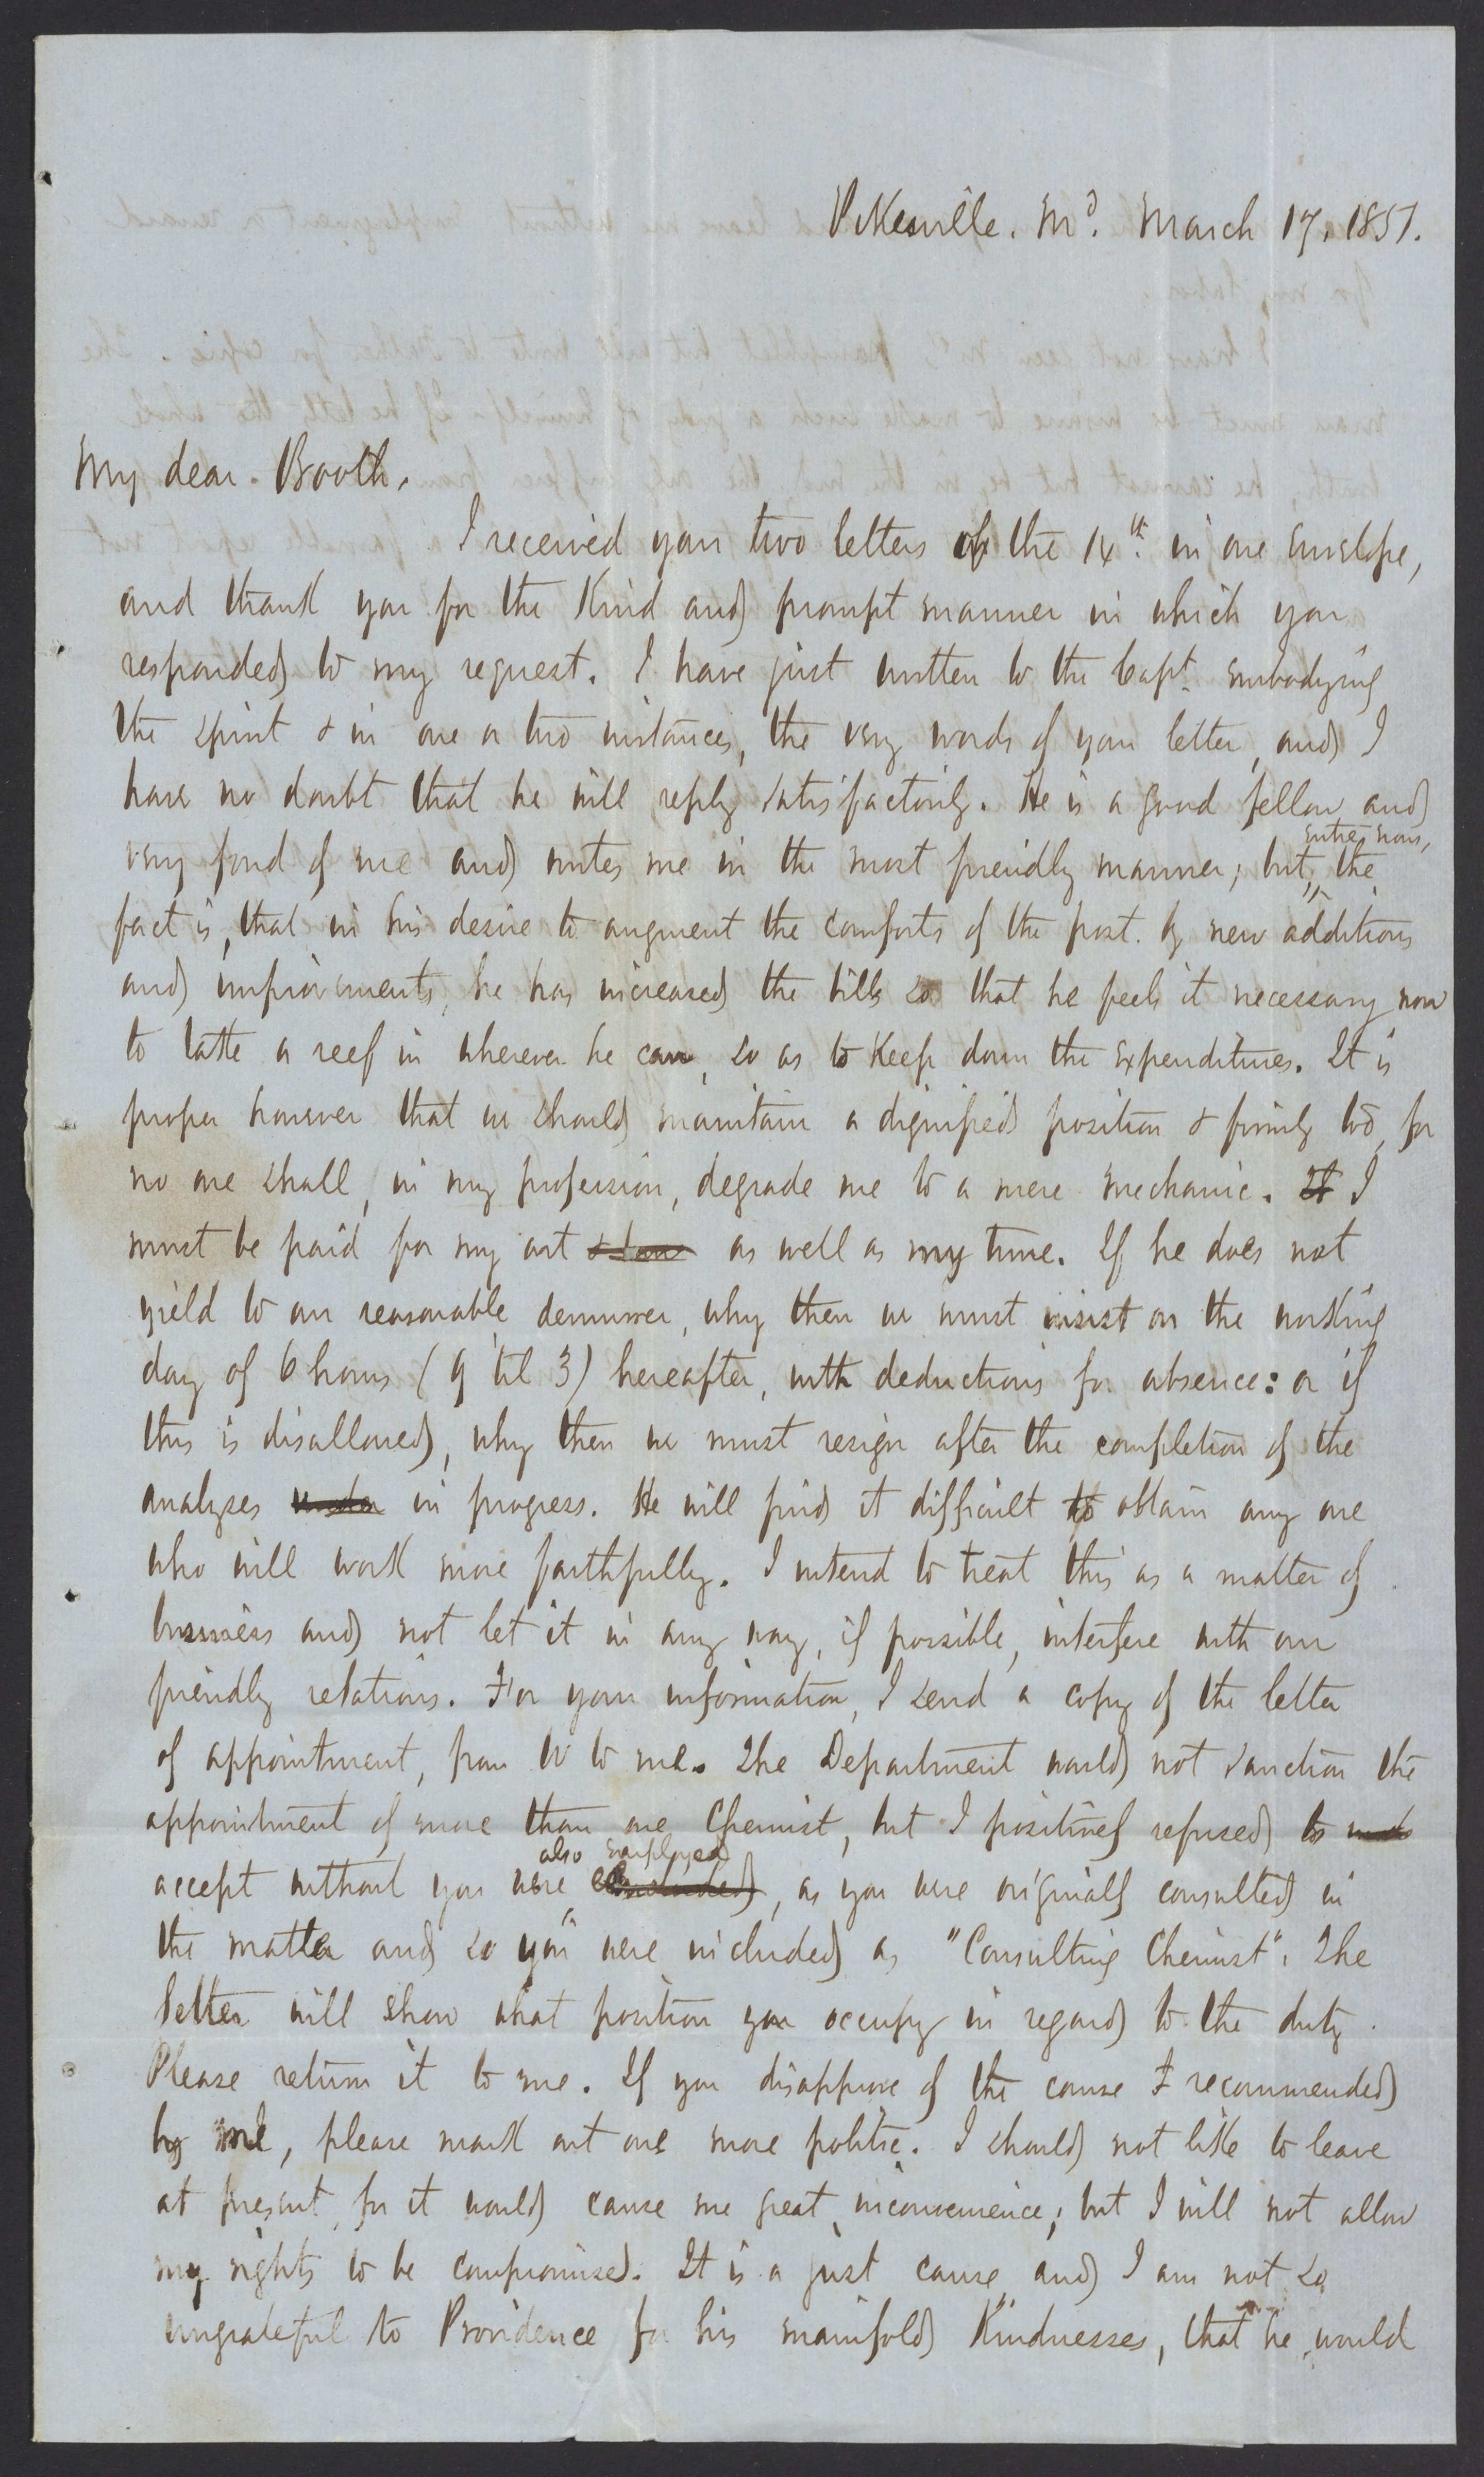 Pikesville. Md. March 17, 1851.
My dear Booth,
I received your two letters of the 14th. in one envelope,
and thank you for the kind and prompt manner in which you
responded to my request. I have just written to the Capt. embodying
the spirit & in one or two instances, the very words of your letter, and I
have no doubt that he will reply satisfactorily. He is a good fellow and
entre nous,
very fond of me and writes me in the most friendly manner; but, the
fact is, that in his desire to augment the comforts of the post by new additions
and improvements, he has increased the bills so that he feels it necessary now
to take a reef in wherever he can, so as to keep down the expenditures. It is
proper however that we should maintain a dignified position & firmly too, for
no one shall, in my profession, degrade me to a mere mechanic. It I
must be paid for my art as well as my time. If he does not
yield to our reasonable demurrer, why then we must insist on the working
day of 6 hours (9 til 3) hereafter, with deductions for absence: or if
this is disallowed, why then we must resign after the completion of the
analyses under in progress. He will find it difficult to obtain any one
who will work more faithfully. I intend to treat this as a matter of
business and not let it in any way, if possible, interfere with our
friendly relations. For your information, I send a copy of the letter
of appointment, from to me. The Department would not sanction the
appointment of more than one Chemist, but I positively refused to
also employed
accept without you were , as you were originally consulted in
the matter and so you were included as "Consulting Chemist". The
letter will show what position you occupy in regard to the duty.
Please return it to me. If you disapprove of the course I recommended
by me, please mark out one more politic. I should not like to leave
at present, for it would cause me great inconvenience; but I will not allow
my rights to be compromised. It is a just cause and I am not so
ungrateful to Providence for his manifold kindnesses, that he would